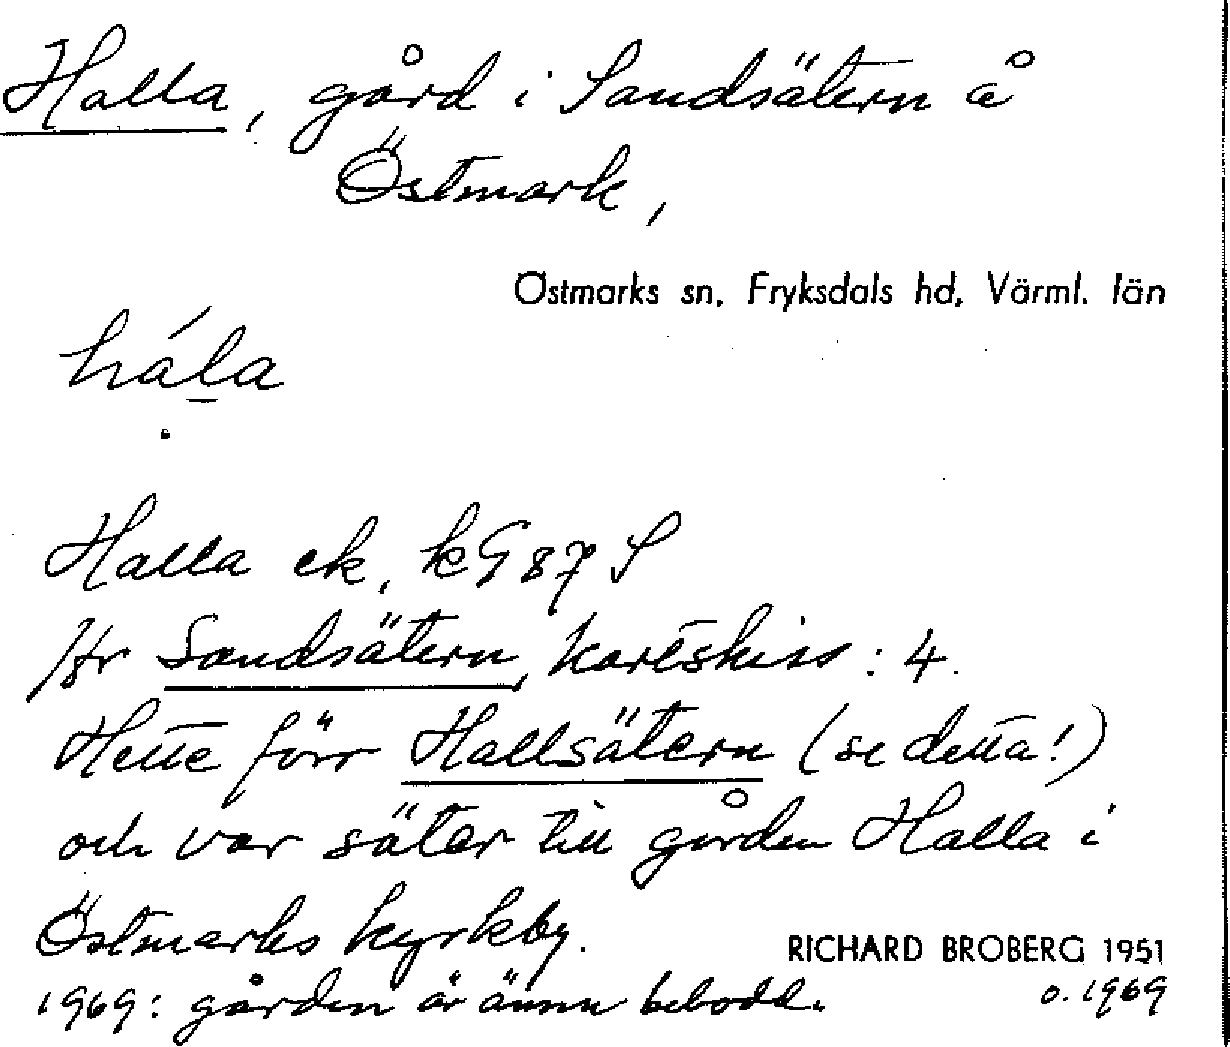 Halla, gård i Sandsätern å
Östmark,
Östmarks sn, Fryksdals hd, Värml. län
hála
Halla ek, kG 87 S
Hr Sandsätern, kartskiss: 4.
Hette förr Hallsätern (se detta!)
och var säter till gården Halla i
Östmarks kyrkby.
RICHARD BROBERG 1951
1969: gården är ännu bebodd.
o. 1969